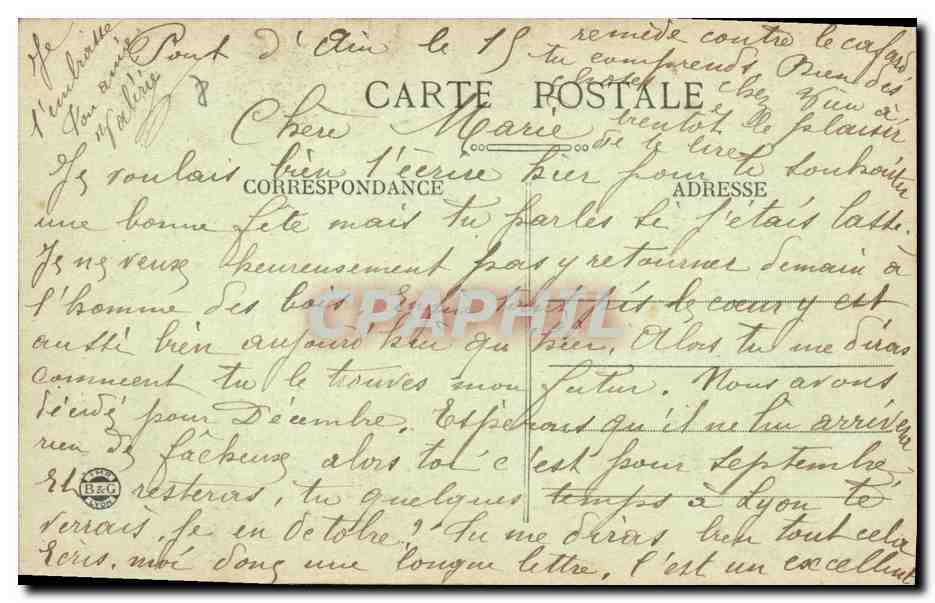 Pont d'Ain le 15
CARTE POSTALE
Chère Marie
Je voulais bien t'écrire hier pour te souhaiter
CORRESPONDANCE
ADRESSE
une bonne fête mais tu parles si j'étais lasse.
Je ne veux heureusement pas y retourner demain à
l'homme des bois. Enfin tout le coeur y est
CPAPHIL
aussi bien aujourd'hui qu'hier. Alors tu me diras
comment tu le trouves mon futur. Nous avons
décidé pour Décembre. Espérons qu'il ne lui arrivera
rien de fâcheux alors toi c'est pour septembre
B&G
LYON
Et resteras, tu quelques temps à Lyon te
verrais, je en octobre? Tu me diras bien tout cela
Ecris, moi donc une longue lettre, c'est un excellent
remède contre le cafard
tu comprends Bien des
choses chez vous à
bientôt le plaisir
de te lire
Je
t'embrasse
Ton amie
Valérie